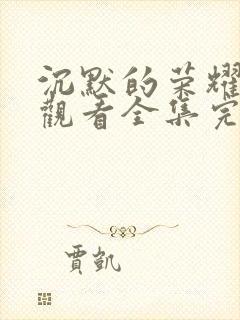 沉默的荣耀
觀看全集完
贾凯